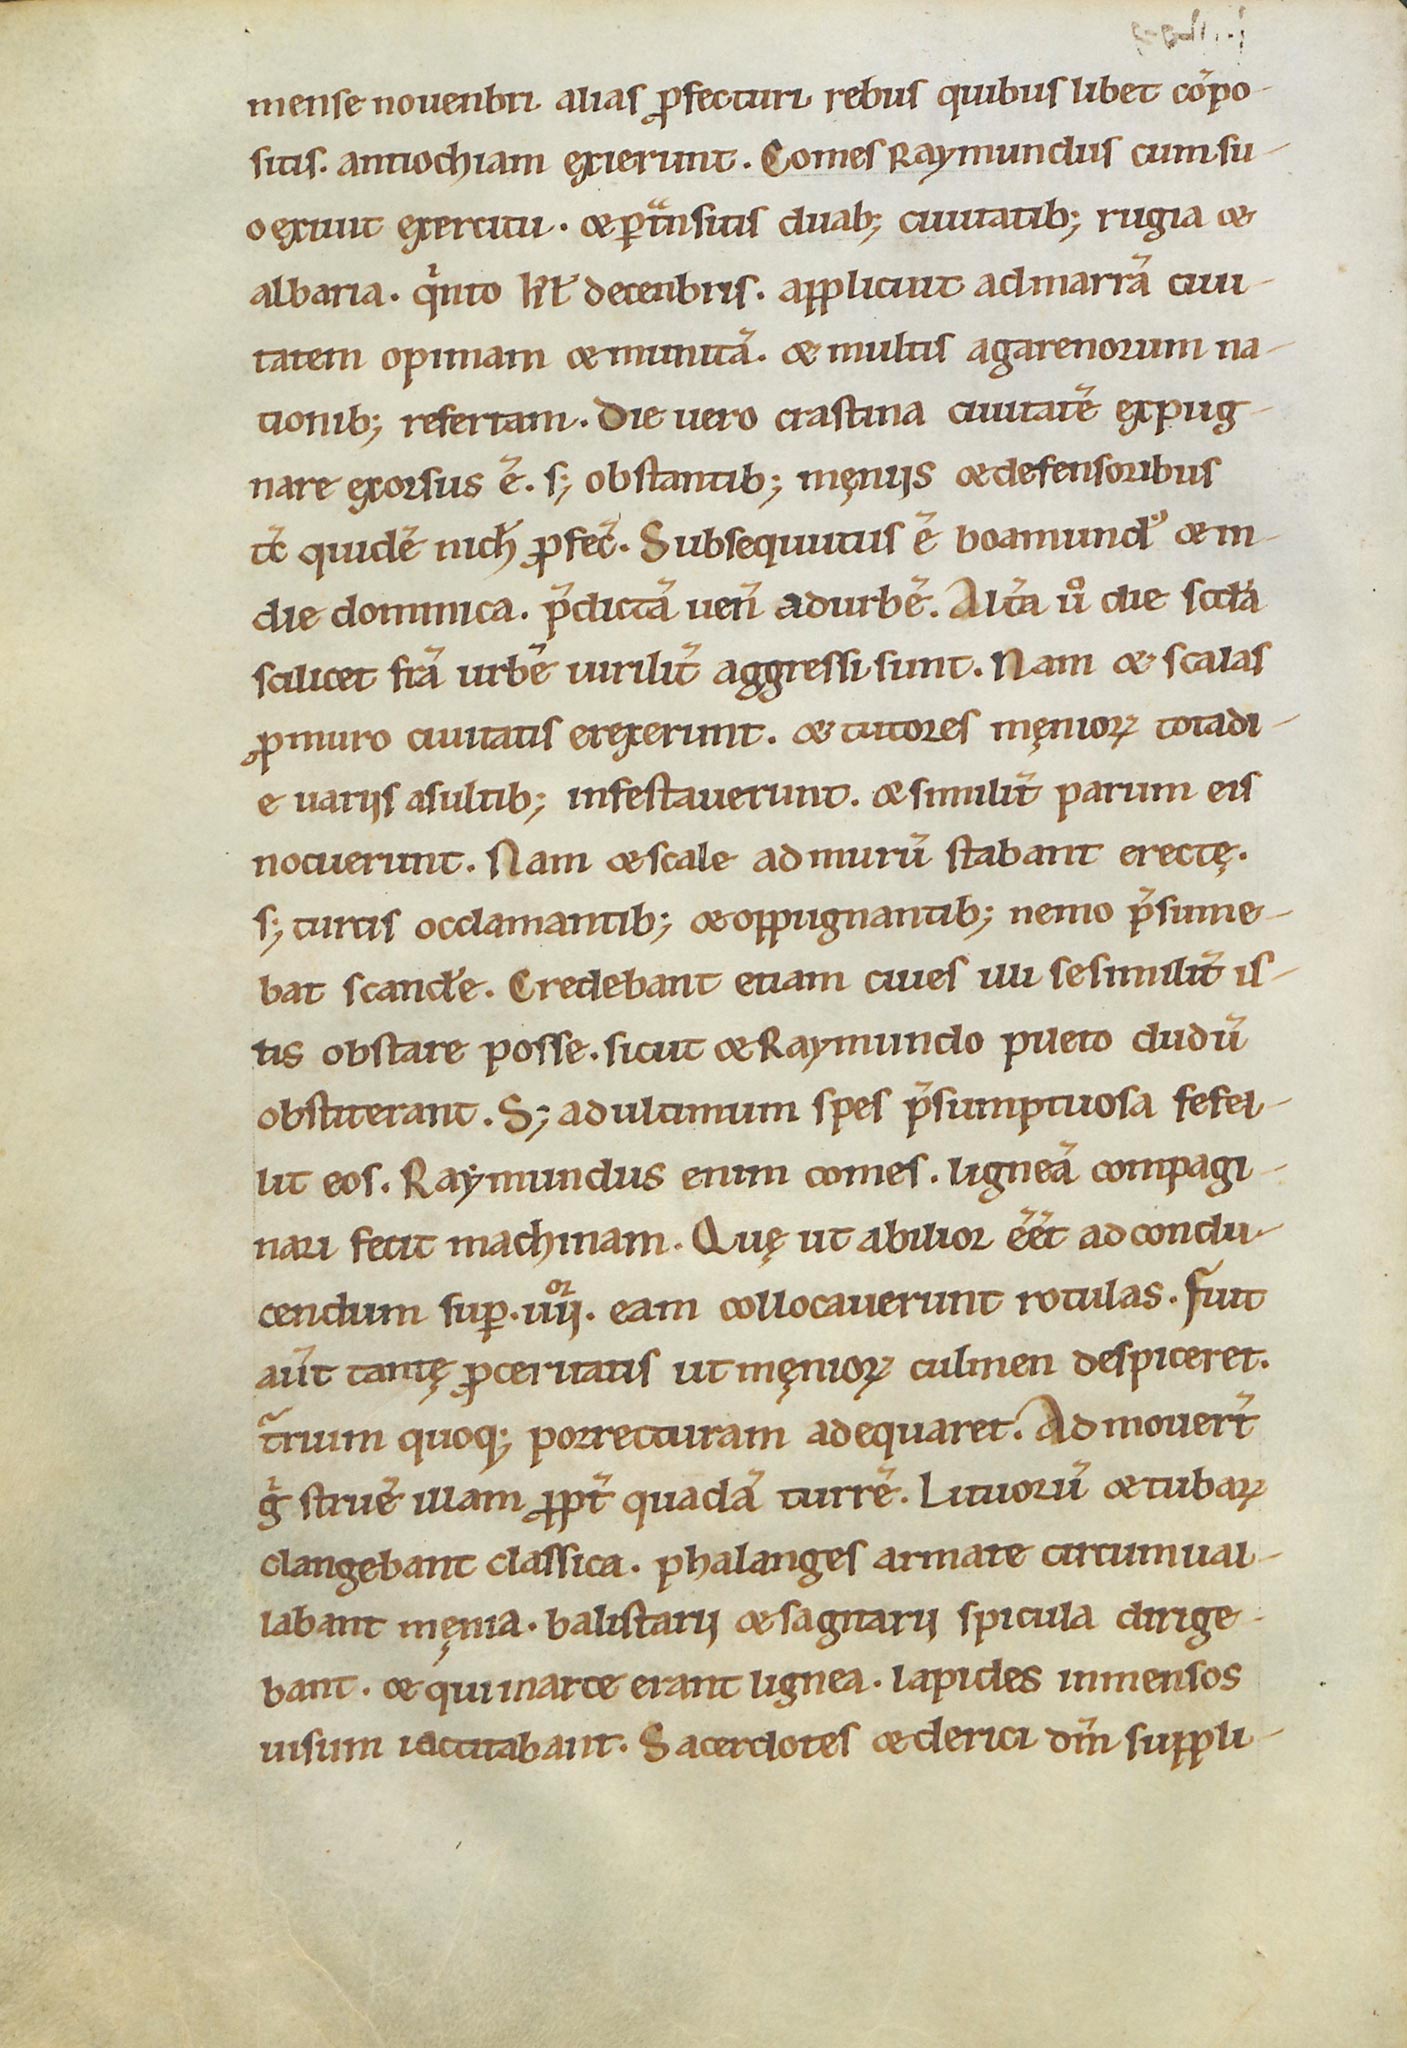 mense nouenbri alias ꝓfecturi rebus quibus libet cōpo-
sitis. antiochiam exierunt. Comes Raymundus cum su-
o exiuit exercitu. & ꝑtͣnsitis duab; ciuitatib; rugia &
albaria. qͥnto kł decenbris. applicuit ad marrā ciui-
tatem opimam & munitā. & multis agarenorum na-
tionib; refertam. Die uero crastina ciuitatē expug-
nare exorsus ē. s; obstantib; męniis & defensoribus
tc̄ quidē nich̄ ꝓfec̄. Subsequutus ē boamundꝰ & in
die dominica. p̄dictā ueñ ad urbē. Alt̄a uͦ die scd̄a
scilicet fr̄a urbē uirilit̄ aggressi sunt. Nam & scalas
ꝓ muro ciuitatis erexerunt. & tutores męnioꝝ tota di-
e uariis asultib; infestauerunt. & similit̄ parum eis
nocuerunt. Nam & scale ad murū stabant erectę.
s; turcis occlamantib; & oppugnantib; nemo p̄sume-
bat scand̄e. Credebant etiam ciues illi se similit̄ is-
tis obstare posse. sicut & Raymundo pileto dudū
obstiterant. S; ad ultimum spes p̄sumptuosa fefel-
lit eos. Raymundus enim comes. ligneā compagi-
nari fecit machinam. Quę ut abilior ēēt ad condu-
cendum suꝑ. iiijͦʳ. eam collocauerunt rotulas. Fuit
aūt tantę ꝓceritatis ut męnioꝝ culmen despiceret.
t̄rium quoq; porrecturam adequaret. Admouer̄t
gͥ struē illam ꝓpt̄ quadā turrē. Lituorū & tubaꝝ
clangebant classica. phalanges armate circumual-
labant męnia. balistarii & sagittarii spicula dirige-
bant. & qui in arce erant lignea. lapides inmensos
uisum iactitabant. Sacerdotes & clerici dm̄ suppli-